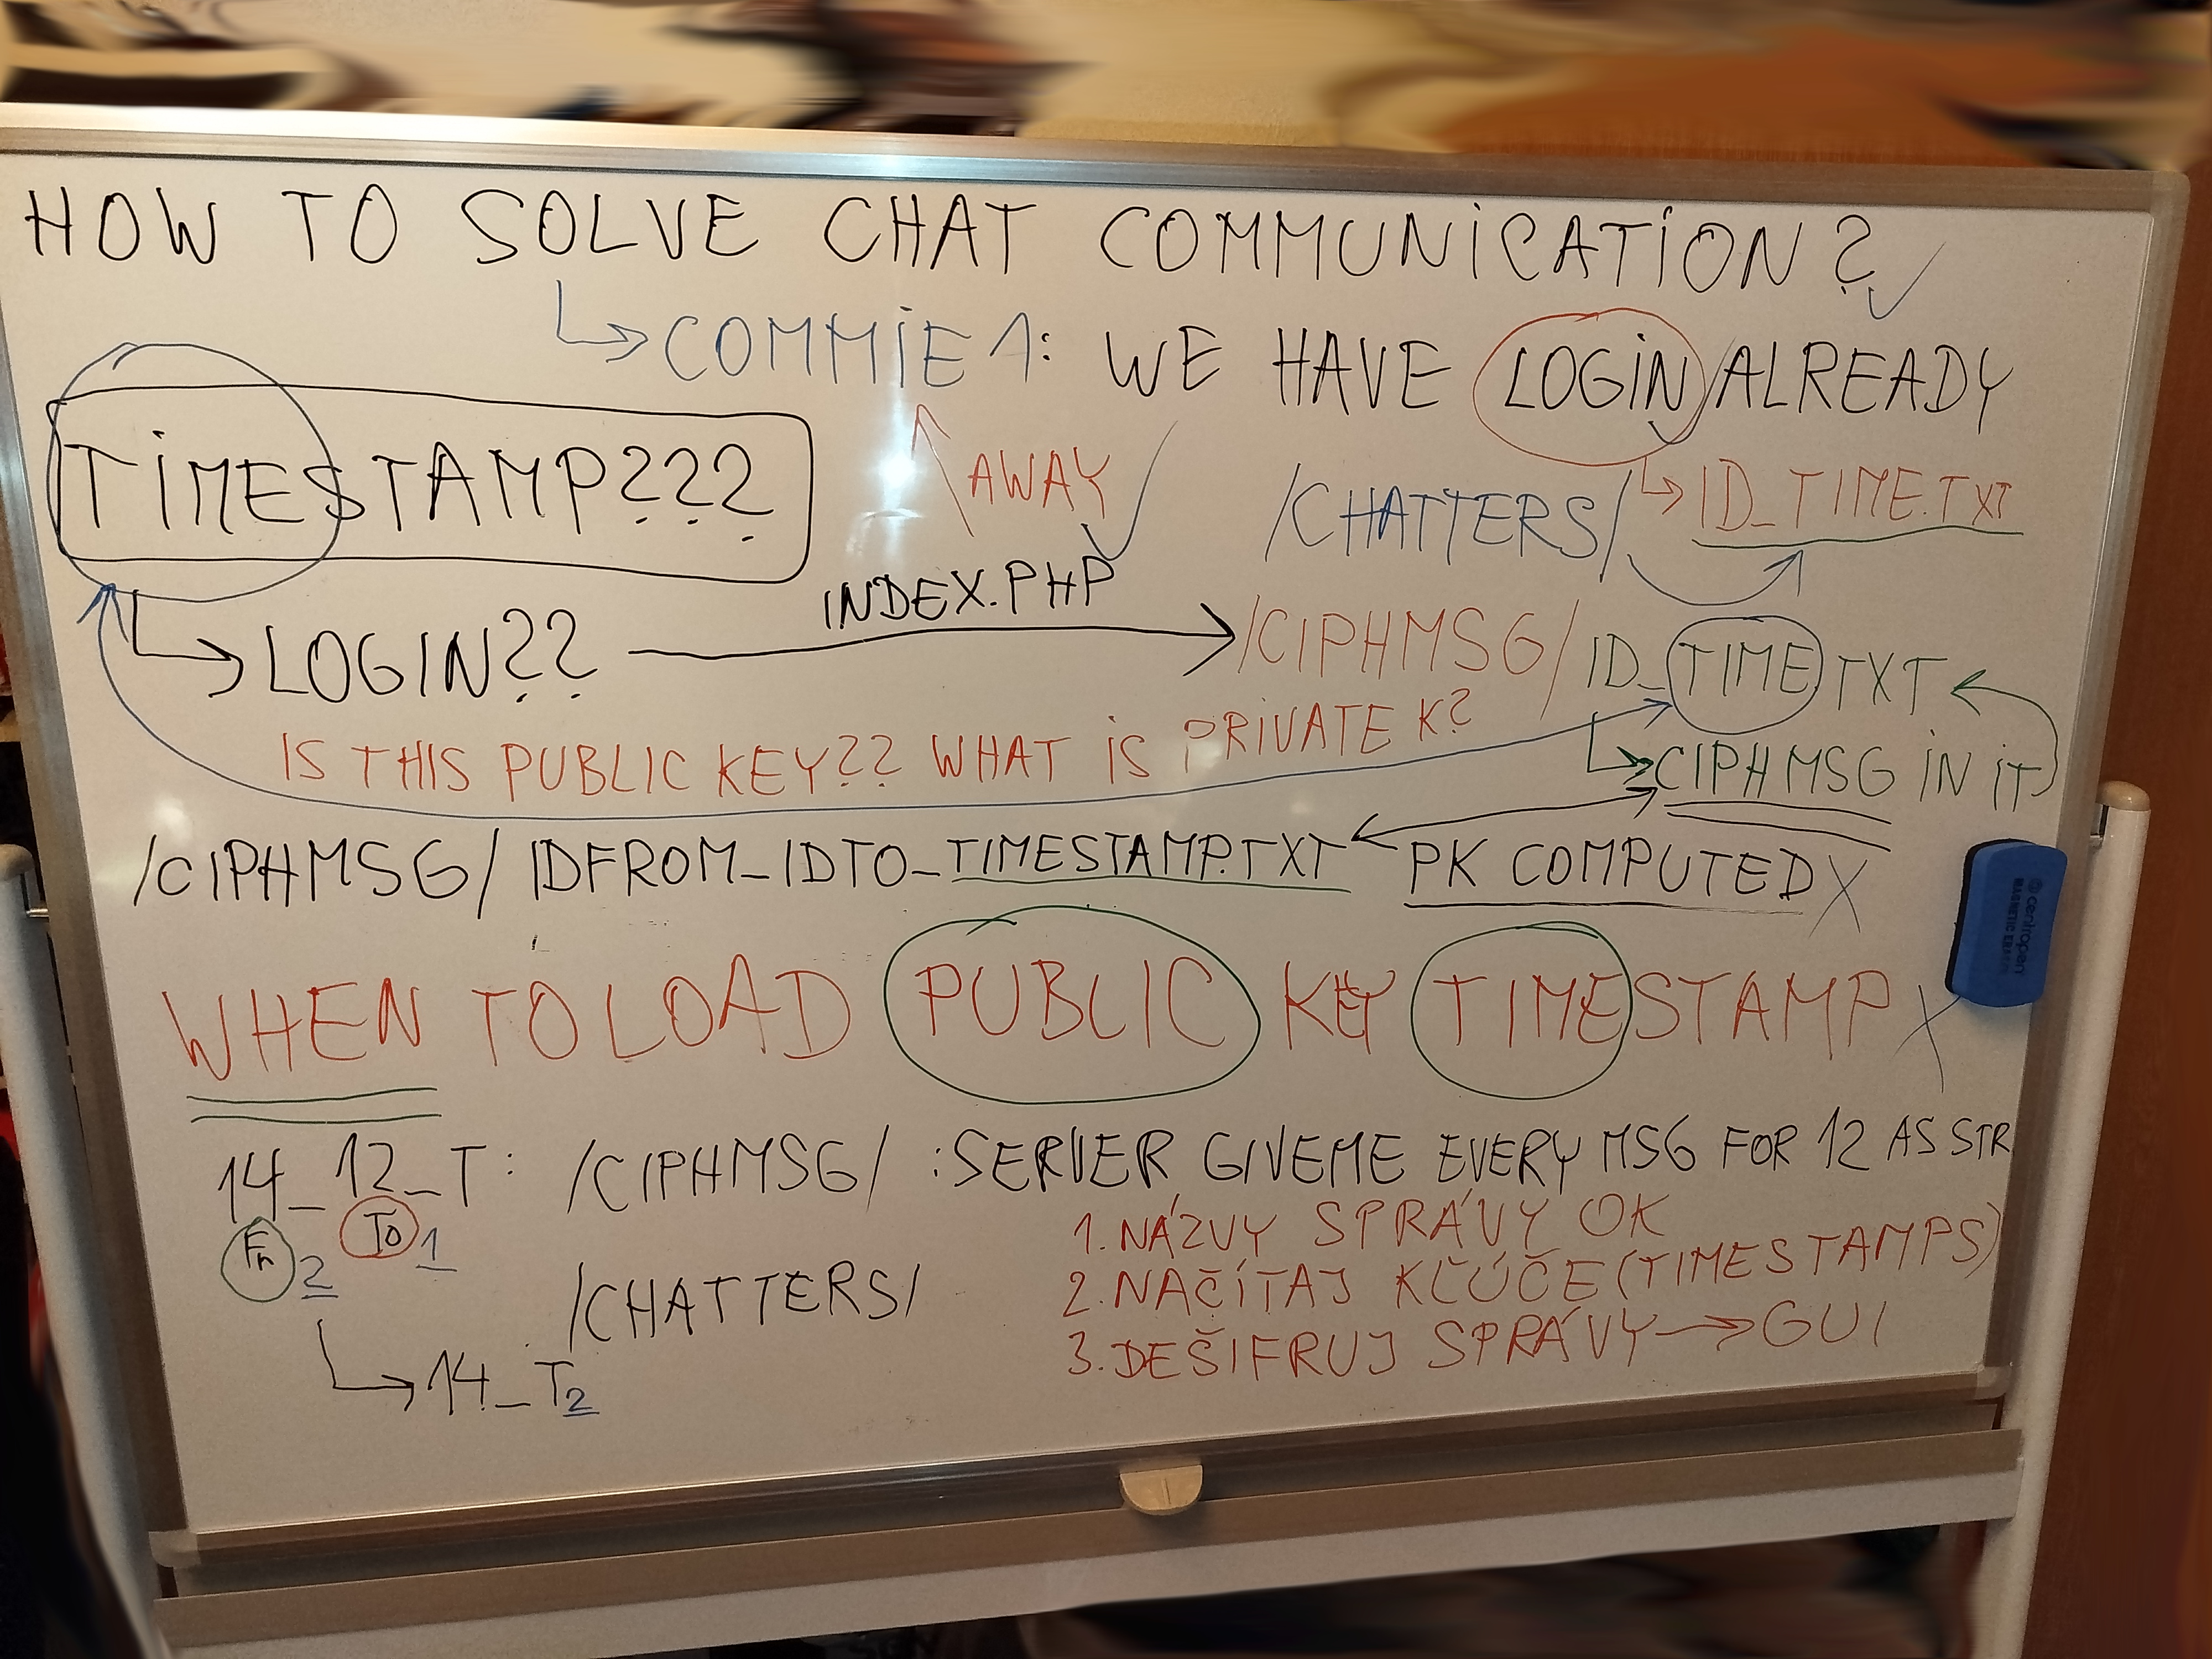 HOW TO SOLVE CHAT COMMUNICATION?
COMMIE 1: WE HAVE LOGIN ALREADY
TIMESTAMP???
AWAY
/CHATTERS/
ID_TIME.TXT
LOGIN??
INDEX.PHP
/CIPHMSG/ ID_TIME TXT
IS THIS PUBLIC KEY?? WHAT IS PRIVATE K?
CIPHMSG IN IT
/CIPHMSG/ IDFROM_IDTO_TIMESTAMP.TXT
PK COMPUTED X
WHEN TO LOAD PUBLIC KEY TIMESTAMP X
14_12_T: /CIPHMSG/ :SERVER GIVEME EVERY MSG FOR 12 AS STR
Fr 2 To 1
1. NÁZVY SPRÁVY OK
/CHATTERS/
2. NAČÍTAJ KĽÚČE (TIMESTAMPS)
3. DEŠIFRUJ SPRÁVY → GUI
14_T2
centropen
MAGNETIC ERASER